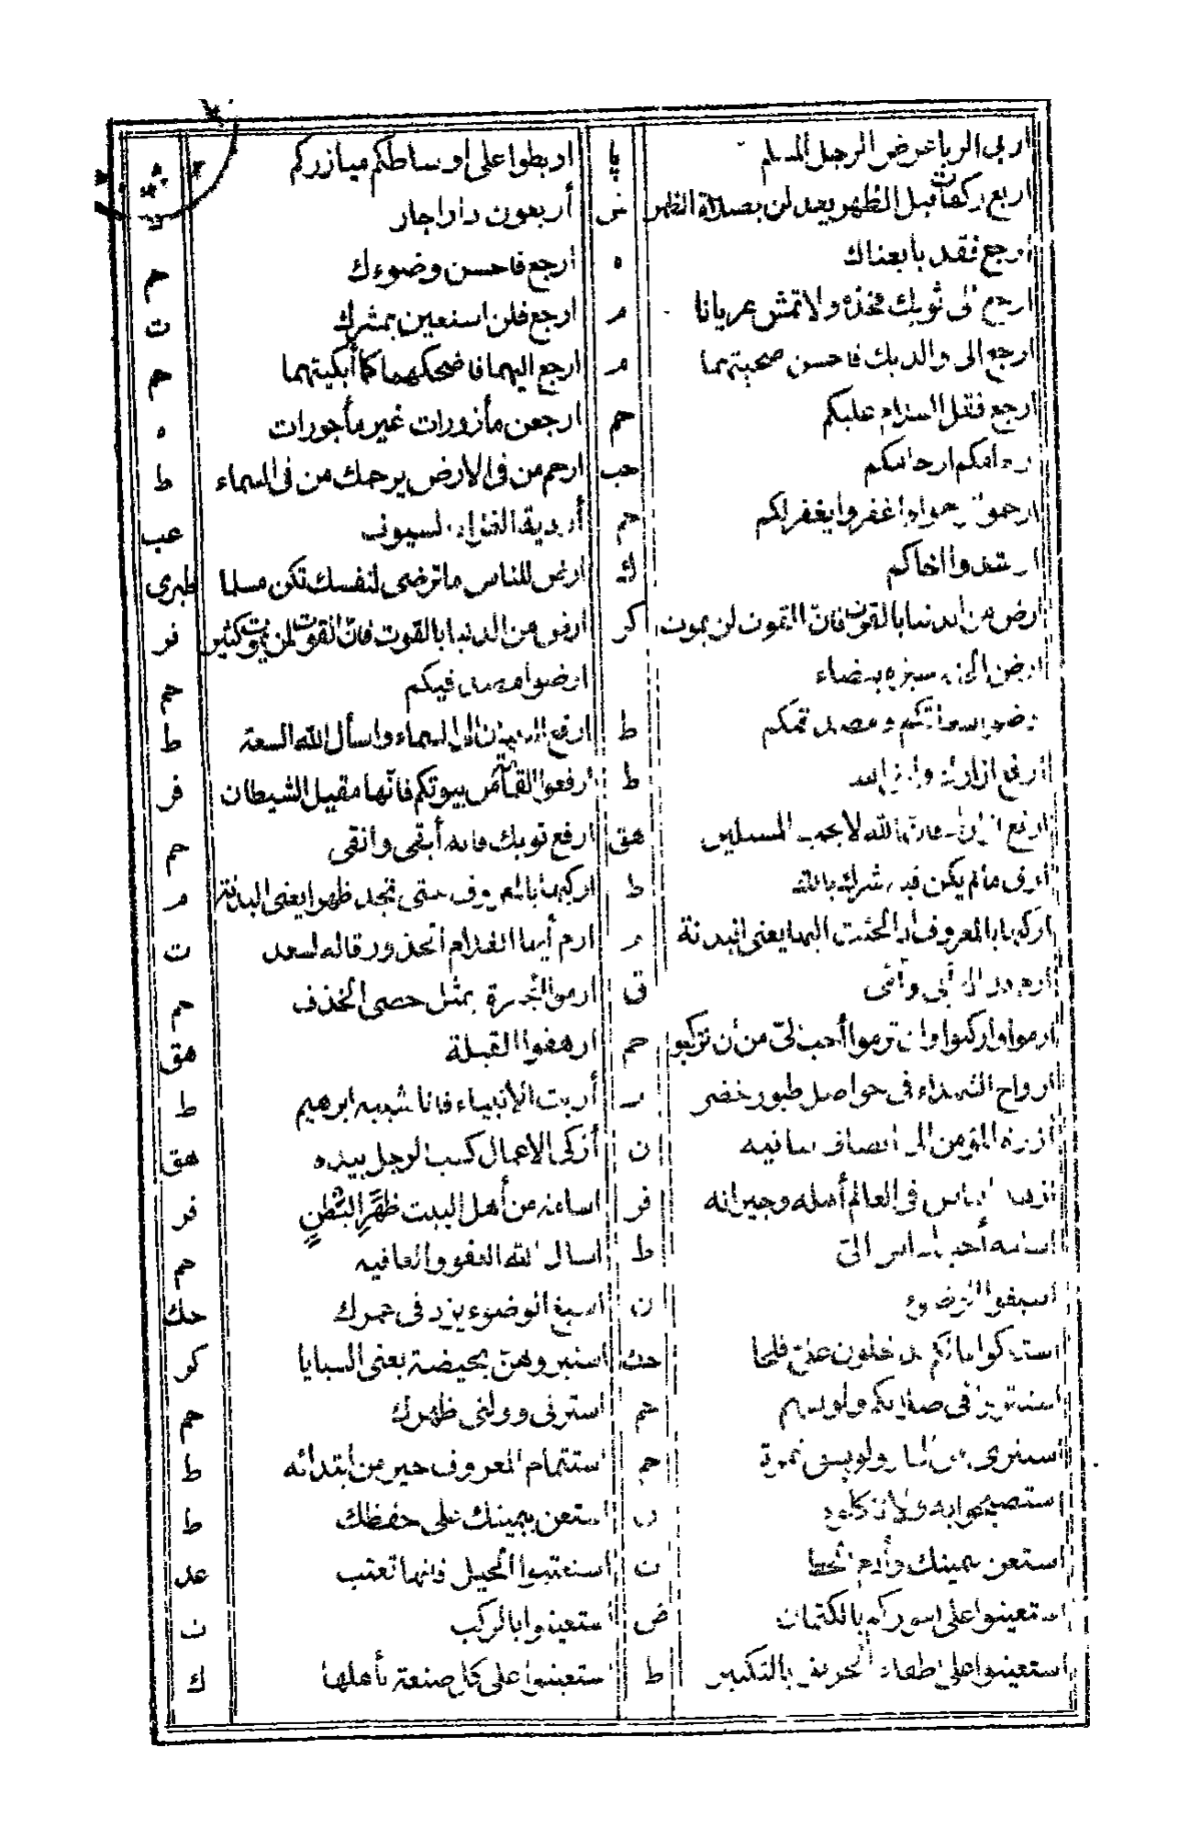 اربى الربا عرض الرجل المسلم يا اربطوا على اوساطكم ميازركم
اربع ركعات قبل الظهر يعدلن بصلاة أربعون دارا جار
ارجع فقد بايعناك ه ارجع فاحسن وضوءك حم
ارجع الى ثوبك فخذه ولا تمش عريانا م ارجع فلن استعين بمشرك ت
ارجع الى والديك فاحسن صحبتهما م ارجع اليهما فاضحكهما كما أبكيتهما حم
ارجع فقل السلام عليكم حم ارجعن مأزورات غير مأجورات ه
ارحامكم ارحامكم حب ارحم من فى الارض يرحمك من فى السماء ط
ارحموا ترحموا واغفروا يغفر لكم حم أردية الغزاة السيوف عب
ارشدوا اخاكم ك ارض للناس ما ترضى لنفسك تكن مسلما طبرى
ارض من الدنيا بالقوت فان القوت لمن يموت كر ارض من الدنيا بالقوت فان القوت لمن يموت كثير فر
ارضوا مصدقيكم حم
ارضوا مصدقيكم ط ارفع البنيان الى السماء واسأل الله السعة ط
ارفع ازارك واتق الله ط ارفعوا القمامة من بيوتكم فانها مقيل الشيطان فر
ارفع ازارك فان الله لا يحب المسبلين هق ارفع ثوبك فانه أبقى وانقى حم
أرقى ما لم يكن فيه شرك بالله ط اركبها بالمعروف حتى تجد ظهرا يعنى البدنة م
اركبها بالمعروف اذا الجئت اليها يعنى البدنة م ارم أيها الغلام الحذور قاله لسعد ت
ارم فداك أبى وأمى ق ارموا الجمرة بمثل حصى الخذف حم
ارموا واركبوا وان ترموا أحب الىّ من أن تركبوا حم ارهقوا القبلة هق
ارواح الشهداء فى حواصل طيور خضر أريت الانبياء فانا شبيه ابرهيم ط
ازرة المؤمن الى انصاف ساقيه ن أزكى الاعمال كسب الرجل بيده هق
ازهد الناس فى العالم أهله وجيرانه فر اسامه من أهل البيت ظَهْرٍ لبَطْنٍ فر
اسامه أحب الناس الىّ ط اسال الله العفو والعافيه حم
اسبغوا الوضوء ن اسبغ الوضوء يزد فى عمرك حك
استاكوا مالكم تدخلون علىّ قلحا استبروهن بحيضة يعنى السبايا كر
استتروا فى صلاتكم ولو بسهم حم استرنى وولنى ظهرك حم
استترى من النار ولو بشق تمرة حم استتمام المعروف خير من ابتدائه ط
استعن بيمينك على حفظك ط
استعن بيمينك ن استعتبوا الخيل فانها تعتب عد
استعينوا على اموركم بالكتمان ض استعينوا بالركب ن
استعينوا على اطفاء الحريق بالتكبير ط استعينوا على كل صنعة باهلها ك